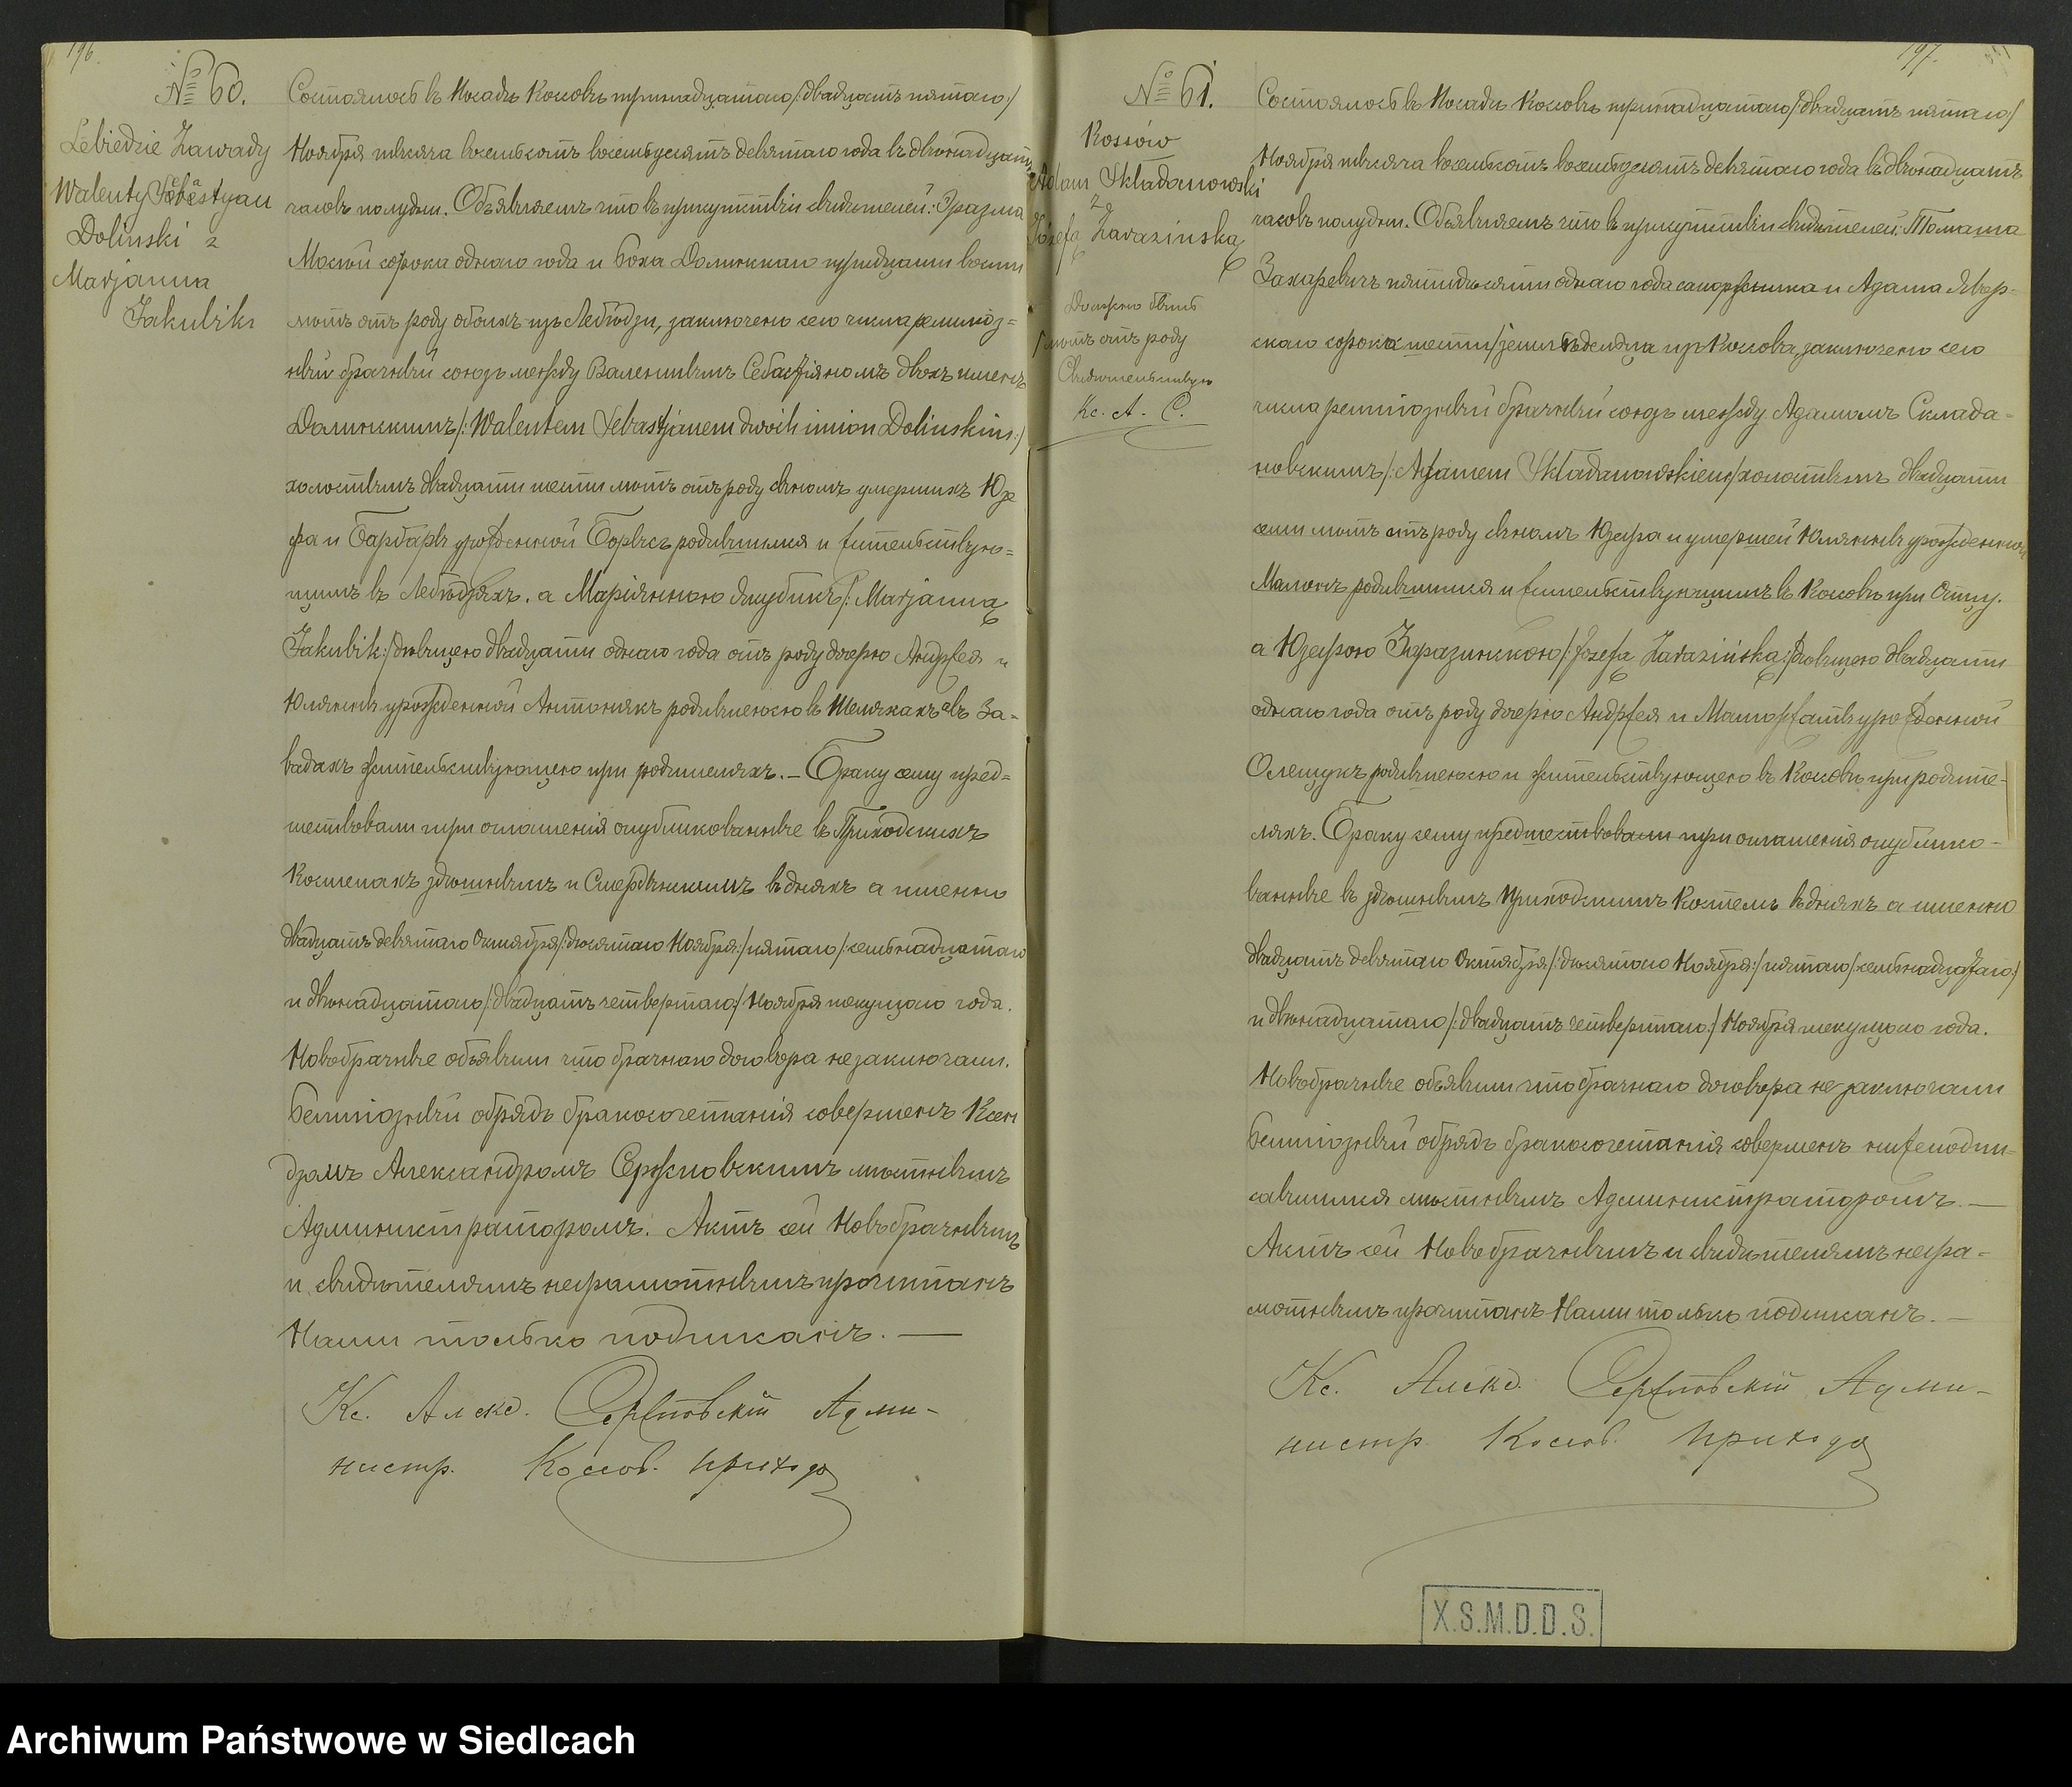 196.
№ 60.
Lebiedzie Zawady
Walenty Sebastyan
Dolinski z
Marjanna
Jakubik
Состоялось въ Посадѣ Коссовъ тринадцатаго /:двадцать пятаго:/
Ноября тысяча восемьсотъ восемьдесятъ девятаго года въ двѣнадцать
часовъ полудни. Объявляемъ что въ присутствіи свидѣтелей: Эразма
сорока однаго года и Долинскаго тридцати восьми
лѣтъ отъ роду обоихъ изъ Лебѣдзи, заключено сего числа религіоз=
ный брачный союзъ между Валентымъ Себастіяномъ двохъ именъ
Долинскимъ /:Walentem Sebastjanem dwoih imion Dolinskim:/
холостымъ двадцати шести лѣтъ отъ роду сыномъ умершихъ Юзе
фа и Барбары урожденной родившимся и жительствую=
щимъ въ Лебѣдзяхъ. а Маріянною Якубикъ /:Marjanną
Jakubik:/ дѣвицею двадцати однаго года отъ роду дочерью Андржея и
Юліянны урожденной Антонякъ родившеюсю въ Шелягахъ а въ За-
вадахъ жительствующею при родителяхъ. — Браку сему пред=
шествовали три оглашенія опубликованные въ Приходскихъ
Костелахъ здѣшнымъ и въ дняхъ а именно
двадцать девятаго Октября /:десятаго Ноября:/ пятаго /:семьнадцатаго
и двѣнадцатаго /:двадцать четвертаго:/ Ноября текущаго года.
Новобрачные объявили что брачнаго договора не заключали.
Религіозный обрядъ бракосочетанія совершенъ Ксен
дзомъ Александромъ мѣстнымъ
Администраторомъ. Актъ сей Новобрачнымъ
и свидѣтелямъ неграмотнымъ прочитанъ
Нами только подписанъ. —
Кс. Алекс. Адми-
нистр. Коссов. прихода
197.
№ 61.
Kossów
Adam Składanowski
z
Józefą Zarazinską
Должно быть
лѣтъ отъ роду
Свидѣтельствую
Кс. А. С.
Состоялось въ Посадѣ Коссовъ тринадцатаго /:двадцать пятаго:/
Ноября тысяча восемьсотъ восемьдесятъ девятаго года въ двѣнадцать
часовъ полудни. Объявляемъ что въ присутствіи свидѣтелей: Томаша
Захаревичъ пятидесяти однаго года и Адама Явор-
скаго сорока шести / земледельца изъ Коссова, заключено сего
числа религіозный брачный союзъ между Адамомъ Склада-
новскимъ /:Adamem Składanowskiem:/ холостымъ двадцати
семи лѣтъ отъ роду сыномъ Юзефа и умершей Юліянны урожденной
родившимся и жительствующимъ въ Коссовѣ при Отцу.
а Юзефою Заразинскою /:Józefą Zarazińską:/ дѣвицею двадцати
однаго года отъ роду дочерью Андржея и Малгоржаты урожденной
Олещукъ родившеюсю и жительствующею въ Коссовѣ при родите-
ляхъ. Браку сему предшествовали три оглашенія опублико-
ванные въ здѣшнымъ Приходскимъ Костелѣ въ дняхъ а именно
двадцать девятаго Октября /:десятаго Ноября:/ пятаго /:семьнадцатаго:/
и двѣнадцатаго /:двадцать четвертаго:/ Ноября текущаго года.
Новобрачные объявили что брачнаго договора не заключали
Религіозный обрядъ бракосочетанія совершенъ нижеподпи-
савшимся мѣстнымъ Администраторомъ. —
Актъ сей Новобрачнымъ и свидѣтелямъ негра-
мотнымъ прочитанъ Нами только подписанъ. —
Кс. Алекс. Адми-
нистр. Коссов. прихода
X.S.M.D.D.S.
Archiwum Państwowe w Siedlcach